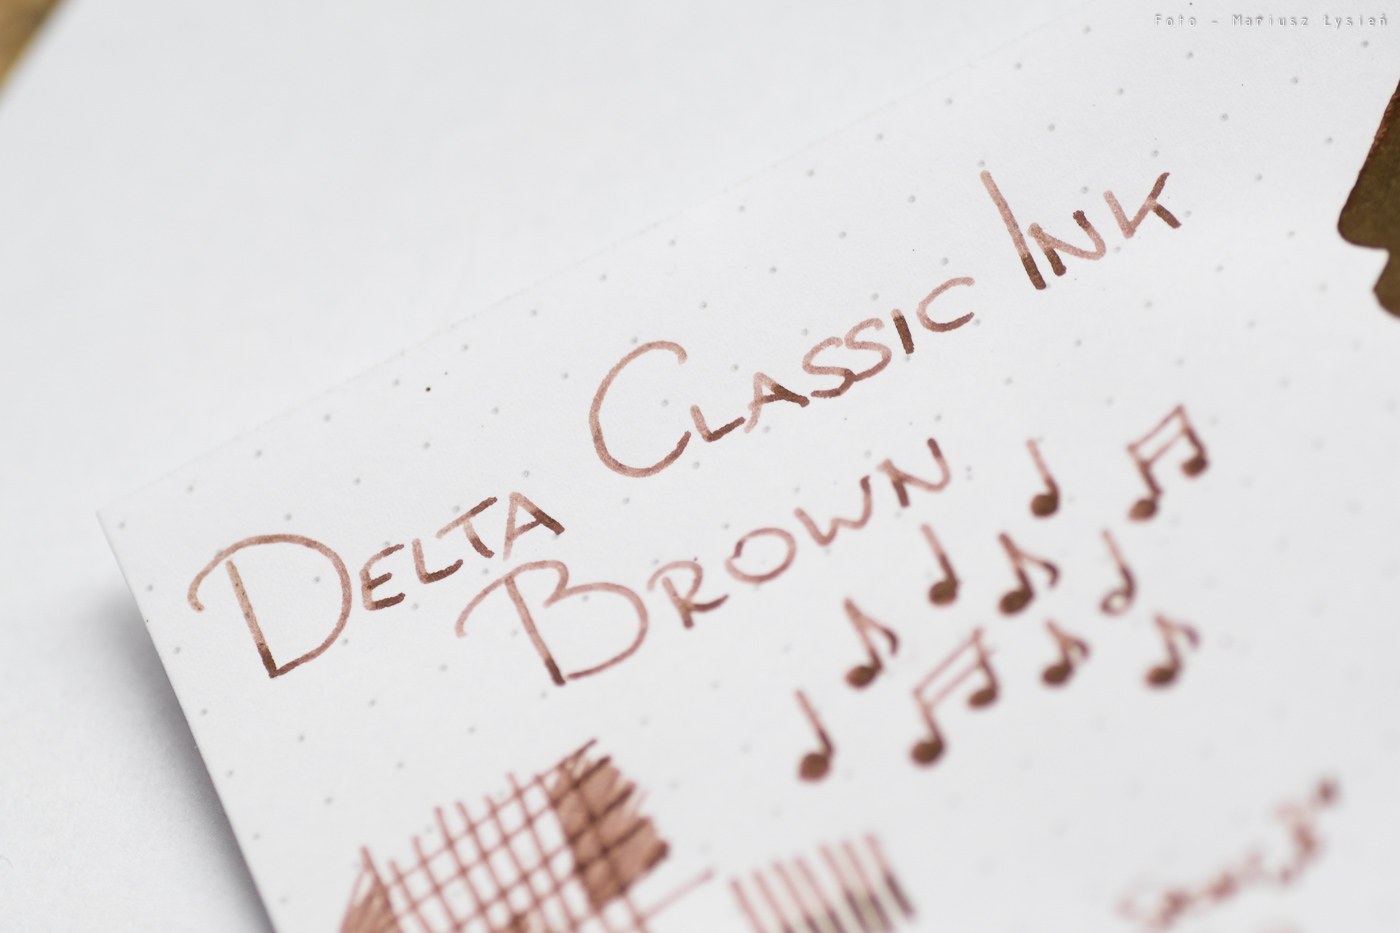 Foto - Mariusz Łysień
Delta Classic Ink
Brown